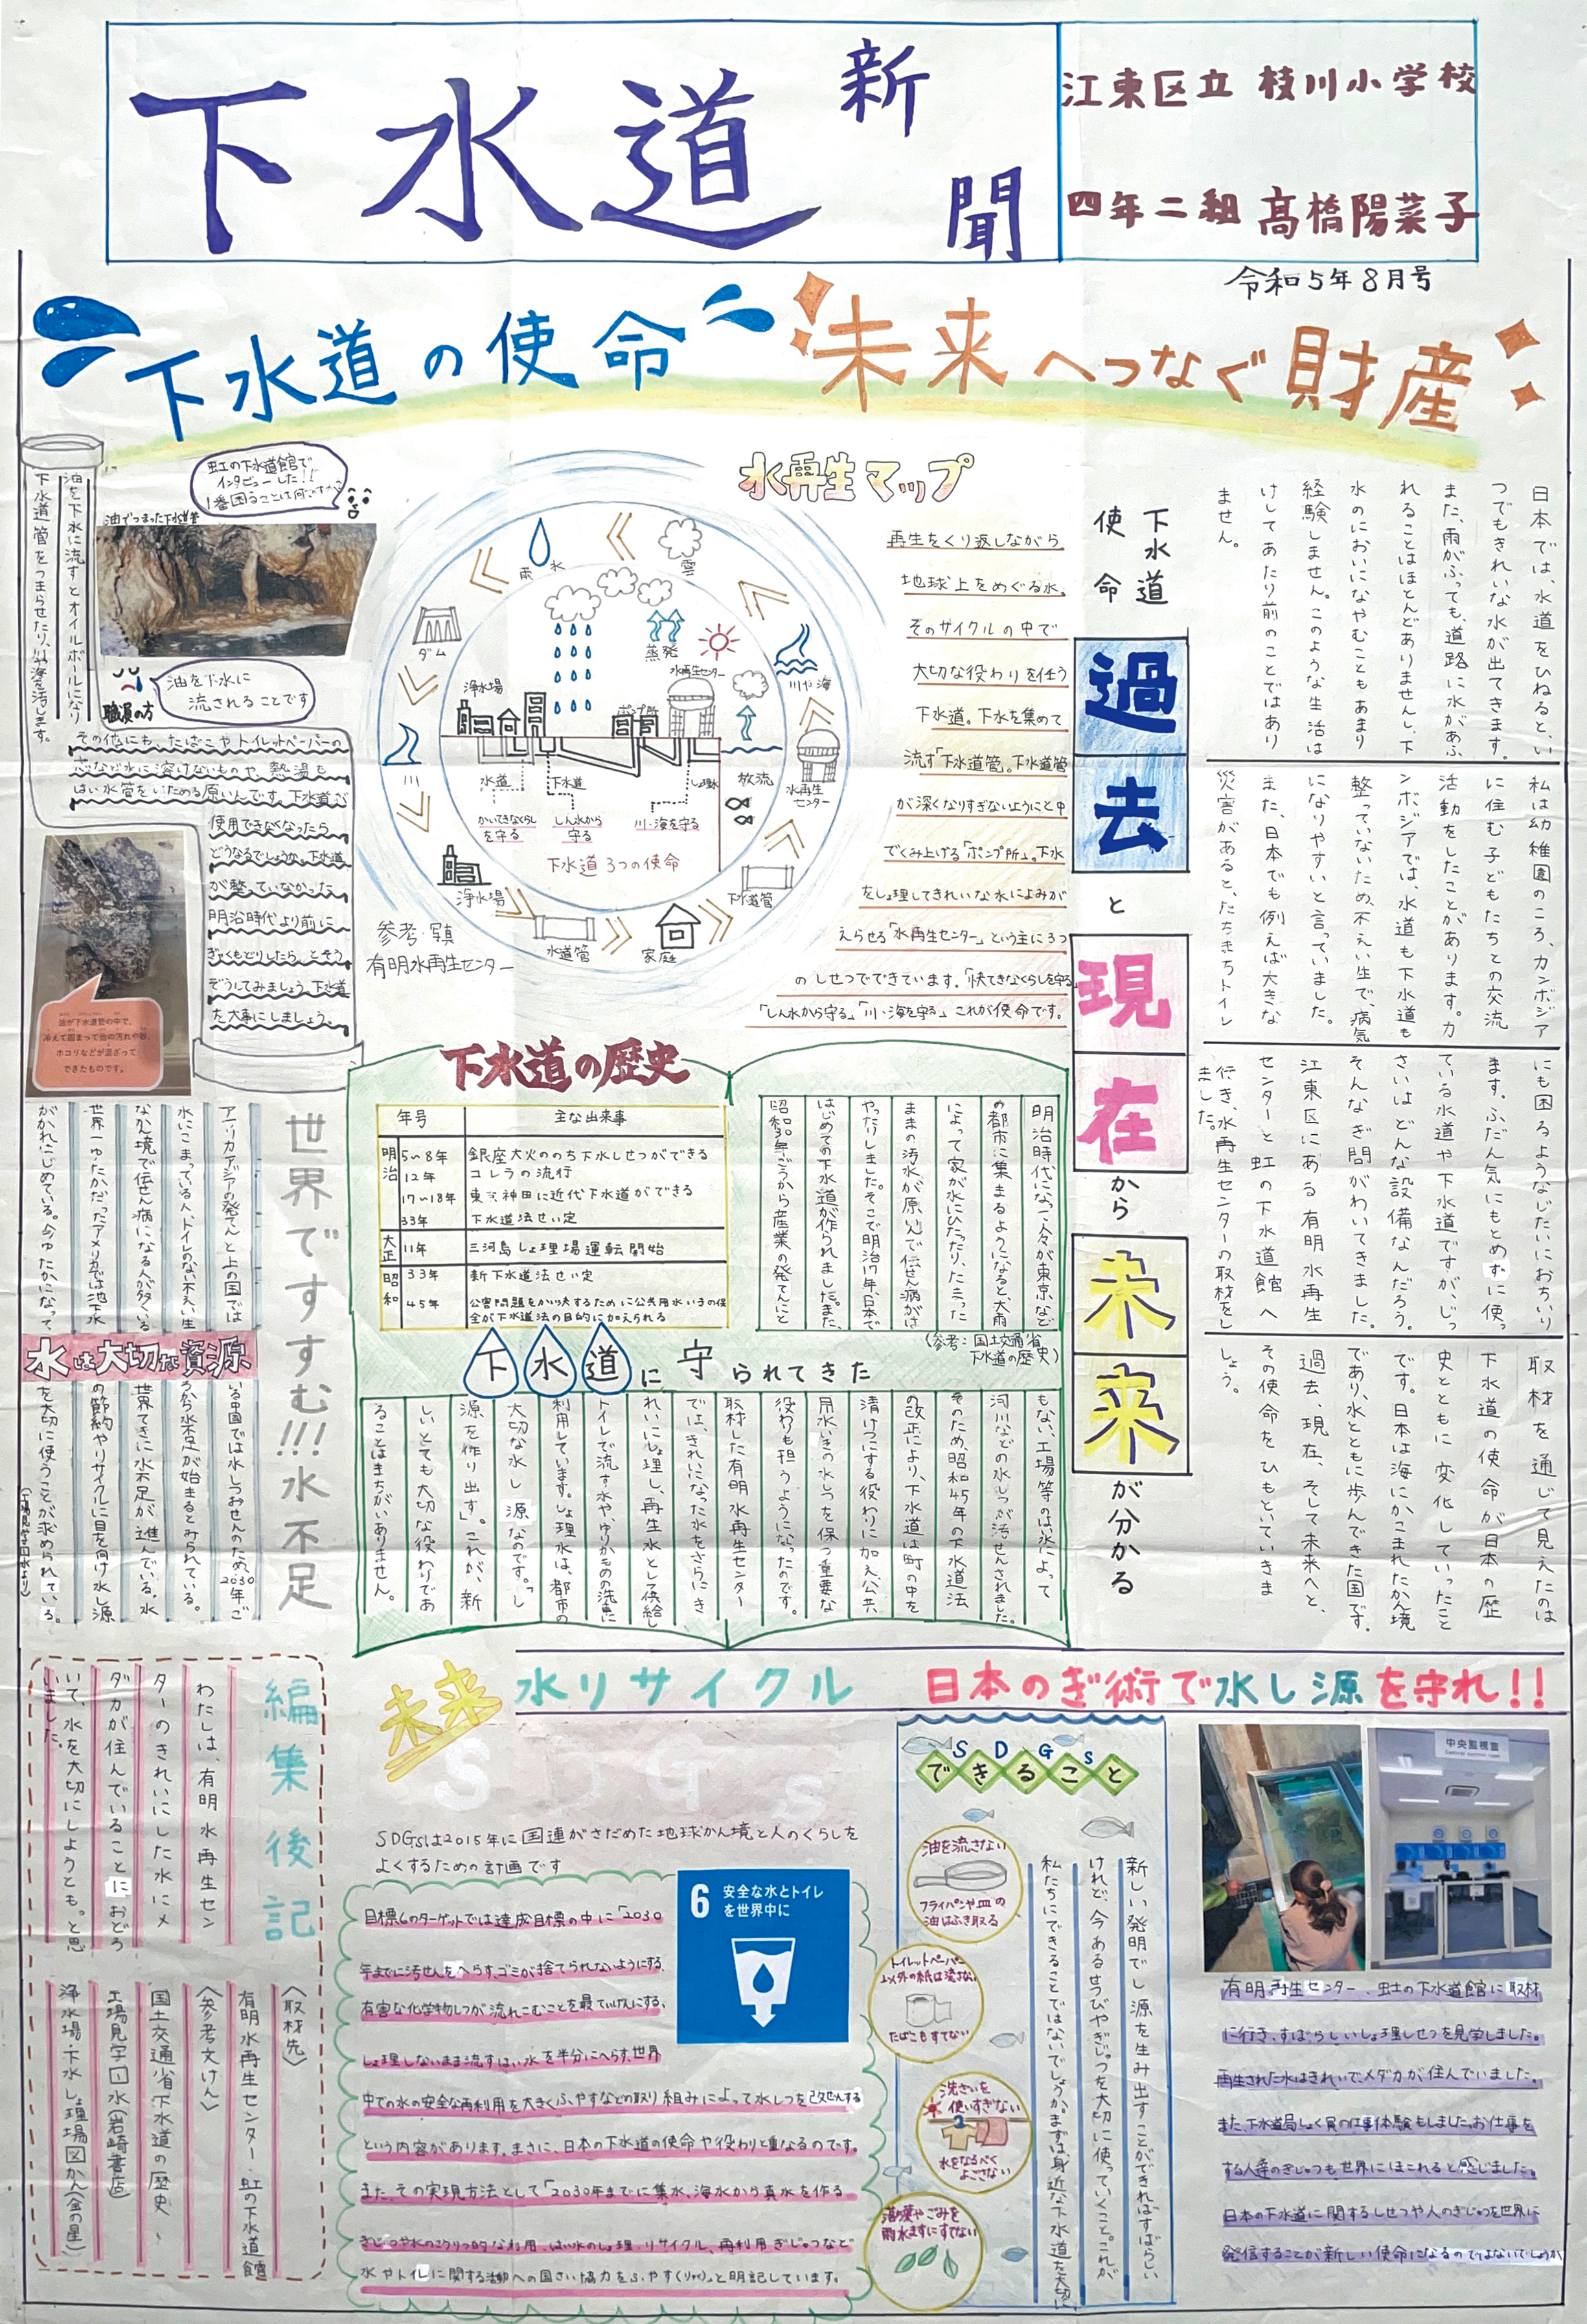 下水道新聞
江東区立 枝川小学校
四年二組 髙橋陽菜子
令和5年8月号
下水道の使命 未来へつなぐ財産
下水道
使命
過去
と
現在
から
未来
が分かる
日本では、水道をひねると、い
つでもきれいな水が出てきます。
また、雨がふっても、道路に水があふ
れることはほとんどありませんし、下
水のにおいになやむこともあまり
経験しません。このような生活は
けしてあたり前のことではあり
ません。
私は幼稚園のころ、カンボジア
に住む子どもたちとの交流
活動をしたことがあります。カ
ンボジアでは、水道も下水道も
整っていないため、不えい生で、病気
になりやすいと言っていました。
また、日本でも例えば大きな
災害があると、たちまちトイレ
にも困るようなじたいにおちいり
ます。ふだん気にもとめずに使っ
ている水道や下水道ですが、じっ
さいはどんな設備なんだろう。
そんなぎ問がわいてきました。
江東区にある有明水再生
センターと虹の下水道館へ
行き、水再生センターの取材をし
ました。
取材を通じて見えたのは
下水道の使命が日本の歴
史とともに変化していったこと
です。日本は海にかこまれたかん境
であり、水とともに歩んできた国です。
過去、現在、そして未来へと、
その使命をひもといていきま
しょう。
水再生マップ
再生をくり返しながら
地球上をめぐる水。
そのサイクルの中で
大切な役わりを任う
下水道。下水を集めて
流す「下水道管」。下水道管
が深くなりすぎないようにと中
でくみ上げる「ポンプ所」。下水
をしょ理してきれいな水によみが
えらせる「水再生センター」という主に3つ
のしせつでできています。「快てきなくらしを守る」
「しん水から守る」「川・海を守る」これが使命です。
雨水
雲
ダム
川
浄水場
水道管
家庭
下水道管
水再生
センター
川や海
蒸発
水再生センター
浄水場
ポンプ所
水道
下水道
しょ理水
放流
かいてきなくらし
を守る
しん水から
守る
川・海を守る
下水道 3つの使命
参考・写真
有明水再生センター
虹の下水道館で
インタビューした!!
1番困ることは何ですか
油でつまった下水道管
油を下水に
流されることです
職員の方
油を下水に流すとオイルボールになり
下水道管をつまらせたり、川や海を汚します。
その他にも、たばこやトイレットペーパーの
芯など水に溶けないものや、熱湯も
はい水管をいためる原いんです。下水道が
使用できなくなったら
どうなるでしょうか。下水道
が整っていなかった
明治時代より前に
ぎゃくもどりしたら、とそう
ぞうしてみましょう。下水道
を大事にしましょう。
油が下水道管の中で、
冷えて固まって他の汚れや砂、
ホコリなどが混ざって
できたものです。
下水道の歴史
年号 主な出来事
明治 5〜8年 銀座大火ののち下水しせつができる
12年 コレラの流行
17〜18年 東京神田に近代下水道ができる
33年 下水道法せい定
大正 11年 三河島しょ理場運転開始
昭和 33年 新下水道法せい定
45年 公害問題をかい決するために公共用水いきの保
全が下水道法の目的に加えられる
明治時代になって、人々が東京など
の都市に集まるようになると、大雨
によって家が水にひたったり、たまった
ままの汚水が原いんで伝せん病がは
やったりしました。そこで明治17年、日本で
はじめての下水道が作られました。また、
昭和30年ごろから産業の発てんと
(参考:国土交通省
下水道の歴史)
下水道に守られてきた
もない、工場等のはい水によって
河川などの水しつが汚せんされました。
そのため、昭和45年の下水道法
の改正により、下水道は町の中を
清けつにする役わりに加え、公共
用水いきの水しつを保つ重要な
役わりも担うようになったのです。
取材した有明水再生センター
では、きれいになった水をさらにき
れいにしょ理し、再生水として供給し
トイレで流す水や、ゆりかもめの洗車に
利用しています。しょ理水は、都市の
大切な水し源なのです。「し
源を作り出す」。これが、新
しいとても大切な役わりであ
ることはまちがいありません。
世界ですすむ!!!水不足
アフリカ、アジアの発てんと上の国では
水にこまっている人、トイレのない不えい生
なかん境で伝せん病になる人が多くいる
世界一ゆたかだったアメリカでは地下水
がかれはじめている。今ゆたかになって
水は大切な資源
いる中国では水しつおせんのため、2030年ご
ろから水不足が始まるとみられている。
世界てきに水不足が進んでいる。水
の節約やリサイクルに目を向け水し源
を大切に使うことが求められている。
(工場見学:水より)
編集後記
わたしは、有明水再生セン
ターのきれいにした水にメ
ダカが住んでいることにおどろ
いて、水を大切にしようともっと思
いました。
〈取材先〉
有明水再生センター・虹の下水道館
〈参考文けん〉
国土交通省下水道の歴史
工場見学 水(岩崎書店)
浄水場・下水しょ理場図かん(金の星)
未来
水リサイクル 日本のぎ術で水し源を守れ!!
SDGs
SDGsは2015年に国連がさだめた地球かん境と人のくらしを
よくするための計画です
6 安全な水とトイレ
を世界中に
目標6のターゲットでは達成目標の中に「2030
年までに汚せんをへらす、ゴミが捨てられないようにする、
有害な化学物しつが流れこむことを最ていげんにする、
しょ理しないまま流すはい水を半分にへらす、世界
中での水の安全な再利用を大きくふやすなどの取り組みによって水しつを改ぜんする
という内容があります。まさに、日本の下水道の使命や役わりと重なるのです。
また、その実現方法として「2030年までに集水、海水から真水を作る
ぎじゅつや水のこうりつ的な利用、はい水のしょ理、リサイクル、再利用ぎじゅつなど
水やトイレに関する活動への国さい協力をふやす(りゃく)」と明記しています。
SDGs
できること
油を流さない
フライパンや皿の
油はふき取る
トイレットペーパー
以外の紙は流さない
たばこもすてない
洗ざいを
使いすぎない
水をなるべく
よごさない
落葉やごみを
雨水ますにすてない
新しい発明でし源を生み出すことができればすばらしい
けれど、今あるせつびやぎじゅつを大切に使っていくこと。これが
私たちにできることではないでしょうか。まずは身近な下水道を大切に
中央監視室
Central control room
有明再生センター、虹の下水道館に取材
に行き、すばらしいしょ理しせつを見学しました。
再生された水はきれいで、メダカが住んでいました。
また、下水道局しょく員の仕事体験もしました。お仕事を
する人達のぎじゅつも世界にほこれると感じました。
日本の下水道に関するしせつや人のぎじゅつを世界に
発信することが新しい使命になるのではないでしょうか